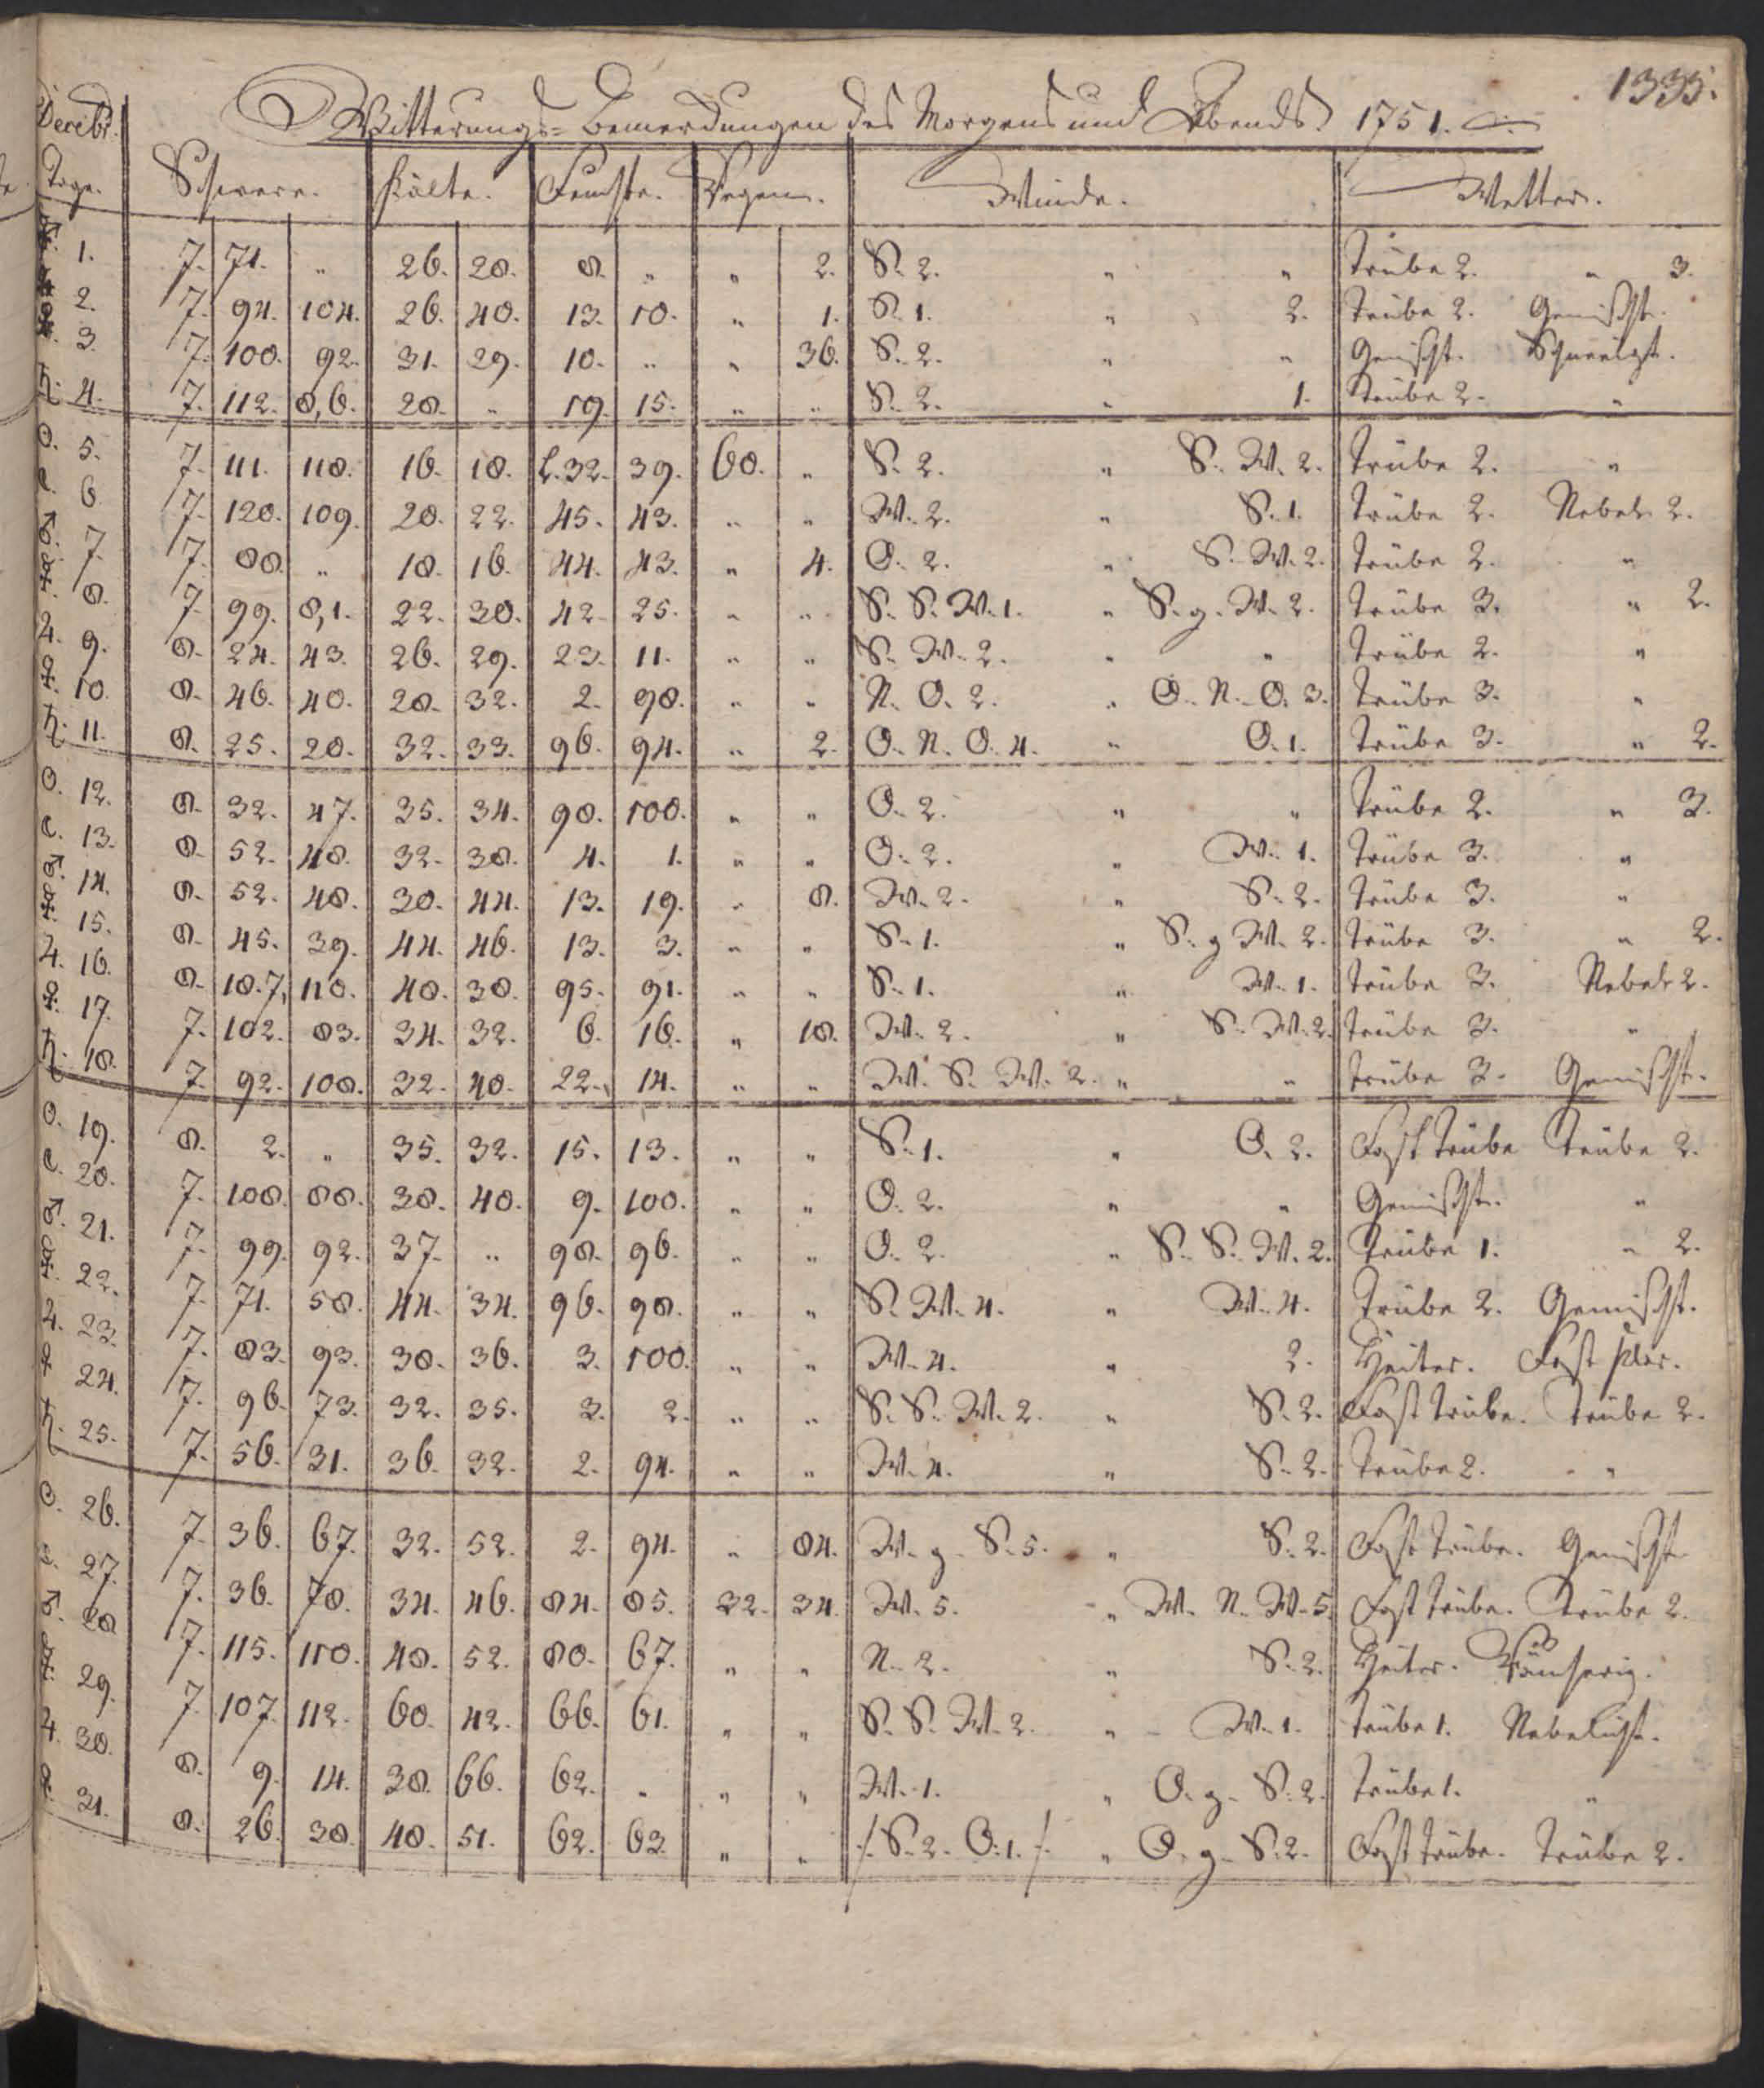 1335.
Decebr. Witterungs-Bemerckungen des Morgens und Abends. 1751.
Tage. Schwere. Kälte. Feuchte. Regen. Winde. Wetter.
♂. 1. 7. 71. „ 26. 28. 8. „ „ 2. S. 2. „ „ Trübe 2. „ 3.
2. 7. 94. 104. 26. 40. 13. 10. „ 1. S. 1. „ 2. Trübe 2. Gemischt.
3. 7. 100. 92. 31. 29. 10. „ „ 36. S. 2. „ „ Gemischt. Schneeigt.
♄. 4. 7. 112. 8,6. 28. „ 19. 15. „ „ S. 2. „ 1. Trübe 2. „
☉. 5. 7. 111. 118. 16. 18. 32. 39. 60. „ S. 2. „ S. W. 2. Trübe 2. „
☾. 6. 7. 120. 109. 20. 22. 45. 43. „ „ W. 2. „ S. 1. Trübe 2. Nebel. 2.
♂. 7. 7. 88. „ 18. 16. 44. 43. „ 4. O. 2. „ S. W. 2. Trübe 2. „
☿. 8. 7. 99. 8,1. 22. 30. 42. 25. „ „ S. S. W. 1. „ S. g. W. 2. Trübe 3. „ 2.
♃. 9. 8. 24. 43. 26. 29. 23. 11. „ „ S. W. 2. „ „ Trübe 2. „
♀. 10. 8. 46. 40. 28. 32. 2. 98. „ „ N. O. 2. „ O. N. O. 3. Trübe 3. „
♄. 11. 8. 25. 20. 32. 33. 96. 94. „ 2. O. N. O. 4. „ O. 1. Trübe 3. „ 2.
☉. 12. 8. 32. 47. 35. 34. 98. 100. „ „ O. 2. „ „ Trübe 2. „ 3.
☾. 13. 8. 52. 48. 32. 38. 4. 1. „ „ O. 2. „ W. 1. Trübe 3. „
♂. 14. 8. 52. 48. 30. 44. 13. 19. „ 8. W. 2. „ S. 2. Trübe 3. „
☿. 15. 8. 45. 39. 44. 46. 13. 3. „ „ S. 1. „ S. g W. 2. Trübe 3. „ 2.
♃. 16. 8. 18. 7, 118. 40. 38. 95. 91. „ „ S. 1. „ W. 1. Trübe 3. Nebel 2.
♀. 17. 7. 102. 83. 34. 32. 6. 16. „ 18. W. 2. „ S. W. 2. Trübe 3. „
♄. 18. 7. 92. 108. 32. 40. 22. 14. „ „ W. S. W. 2. „ „ Trübe 3. Gemischt.
☉. 19. 8. 2. „ 35. 32. 15. 13. „ „ S. 1. „ O. 2. Fast Trübe Trübe 2.
☾. 20. 7. 108. 88. 38. 40. 9. 100. „ „ O. 2. „ „ Gemischt. „
♂. 21. 7. 99. 92. 37. „ 98. 96. „ „ O. 2. „ S. S. W. 2. Trübe 1. „ 2.
☿. 22. 7. 71. 58. 44. 34. 96. 98. „ „ S. W. 4. „ W. 4. Trübe 2. Gemischt.
♃. 23. 7. 83. 93. 38. 36. 3. 100. „ „ W. 4. „ 2. Heiter. Fast klar.
♀ 24. 7. 96. 73. 32. 35. 3. 2. „ „ S. S. W. 2. „ S. 2. Fast Trübe. Trübe 2.
♄. 25. 7. 56. 31. 36. 32. 2. 94. „ „ W. 4. „ S. 2. Trübe 2. „
☉. 26. 7. 36. 67. 32. 52. 2. 94. „ 84. W. g. S. 5. „ S. 2. Fast Trübe. Gemischt
☾. 27. 7. 36. 78. 34. 46. 84. 85. 32. 34. W. 5. „ W. N. W. 5. Fast Trübe. Trübe 2.
♂. 28 7. 115. 118. 48. 52. 80. 67. „ „ N. 2. „ S. 2. Heiter.
☿. 29. 7. 107. 112. 60. 42. 66. 61. „ „ S. S. W. 2. „ W. 1. Trübe 1. Nebelicht.
♃. 30. 8. 9. 14. 38. 66. 62. „ „ „ W. 1. „ O. g. S. 2. Trübe 1. „
♀. 31. 8. 26. 38. 48. 51. 62. 63. „ „ /. S. 2. O. 1. /. „ O. g. S. 2. Fast Trübe. Trübe 2.